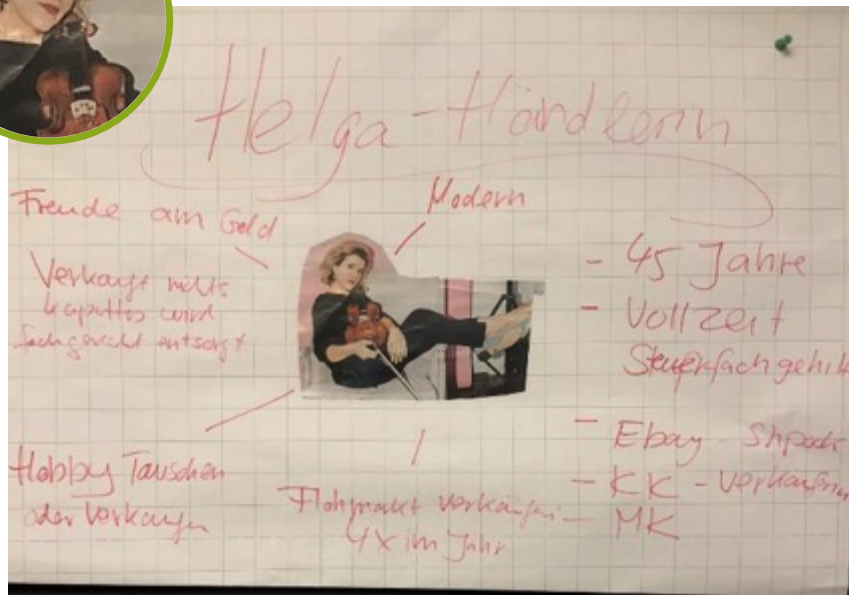 Helga-Händlerin
Freude am Geld
Modern
Verkauft nichts
kaputtes wird
fachgerecht entsorgt
Hobby Tauschen
oder Verkaufen
Flohmarkt verkäuferin
4x im Jahr
- 45 Jahre
- Vollzeit
Steuerfachgehilf
- Ebay Shpock
- KK - Verkäuferin
- MK